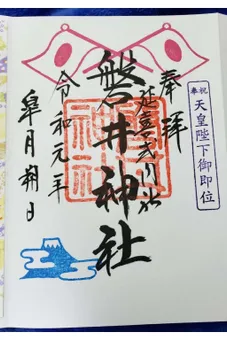 奉祝
天皇陛下御即位
奉拝
延喜式内社
磐井神社
令和元年
皐月朔日